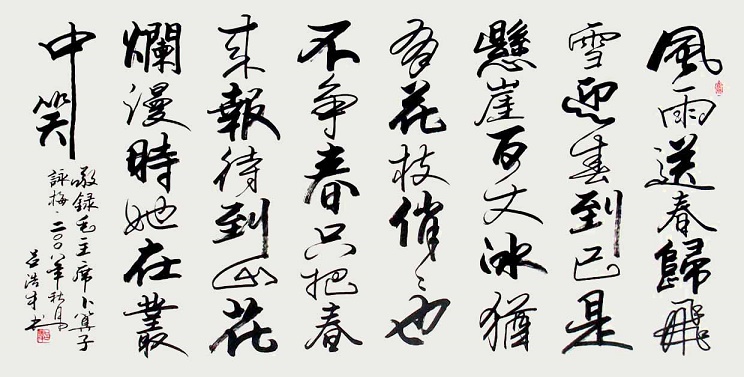 風雨送春歸飛
雪迎春到已是
懸崖百丈冰猶
有花枝俏々也
不争春只把春
来報待到山花
爛漫時她在叢
中笑
敬録毛主席卜算子
詠梅·二〇〇八年秋
吕浩书